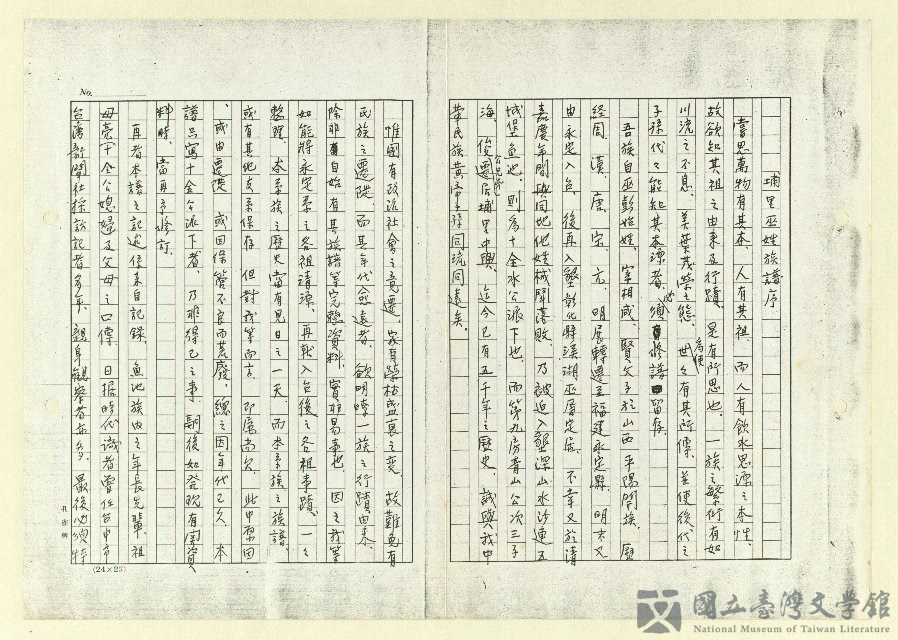 埔里巫姓族譜序
嘗思萬物有其本,人有其祖,而人有飲水思源之本性,
故欲知其祖之由來及行蹟,是有所思也。一族之繁衍有如
川流之不息,美葉茂榮之態,為使世々有其所傳,並使後代之
子孫代々能知其本源者,必須修譜留存。
吾族自巫彭始姓,宰相咸、賢父子於山西平陽開族,歷
經周、漢、唐、宋、元、明展轉遷至福建永定縣,明末又
由永定入台,後再入墾彰化縣溪湖巫厝定居,不幸又於清
嘉慶年間與同地他姓械鬥落敗,乃被迫入墾深山水沙連五
城堡魚池,則為十全水公派下也。而第九房青山公次三子
海、俊遷居埔里中興,迄今已有五千年之歷史,誠與我中
華民族黃帝子孫同流同遠矣。
惟國有政流社會之竟遷,家有榮枯盛衰之變,故難免有
民族之遷徙,而其年代愈遠者,欲明瞭一族之行蹟由來,
除非自始有其族譜等完整資料,實非易事也,因之我等
如能將永定系之各祖清源,再就入台後之各祖事蹟,一々
整理,本系族之歷史當有見日之一天,而本系族之族譜,
或有其他支系保存,但對我等而言,即屬尚欠,此中原因
、或由遷徙、或因保管不良而荒廢,總之因年代已久,本
譜只寫十全公派下者,乃非得已之事,期後如發現有關資
料時,當再予修訂。
再者本譜之記述係來自記錄,魚池族內之年長先輩,祖
母亮、十全公媳婦及父母之口傳,日據時代識者曾任台中市
台灣新聞社採訪記者多年,親身觀察者亦多,最後必須特
No.
(24×25)
國立臺灣文學館
National Museum of Taiwan Literature